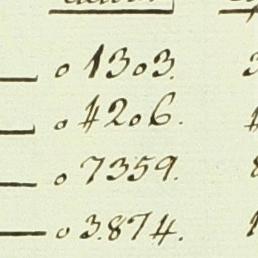 0 1303.
0 4206.
0 7359.
0 3.874.